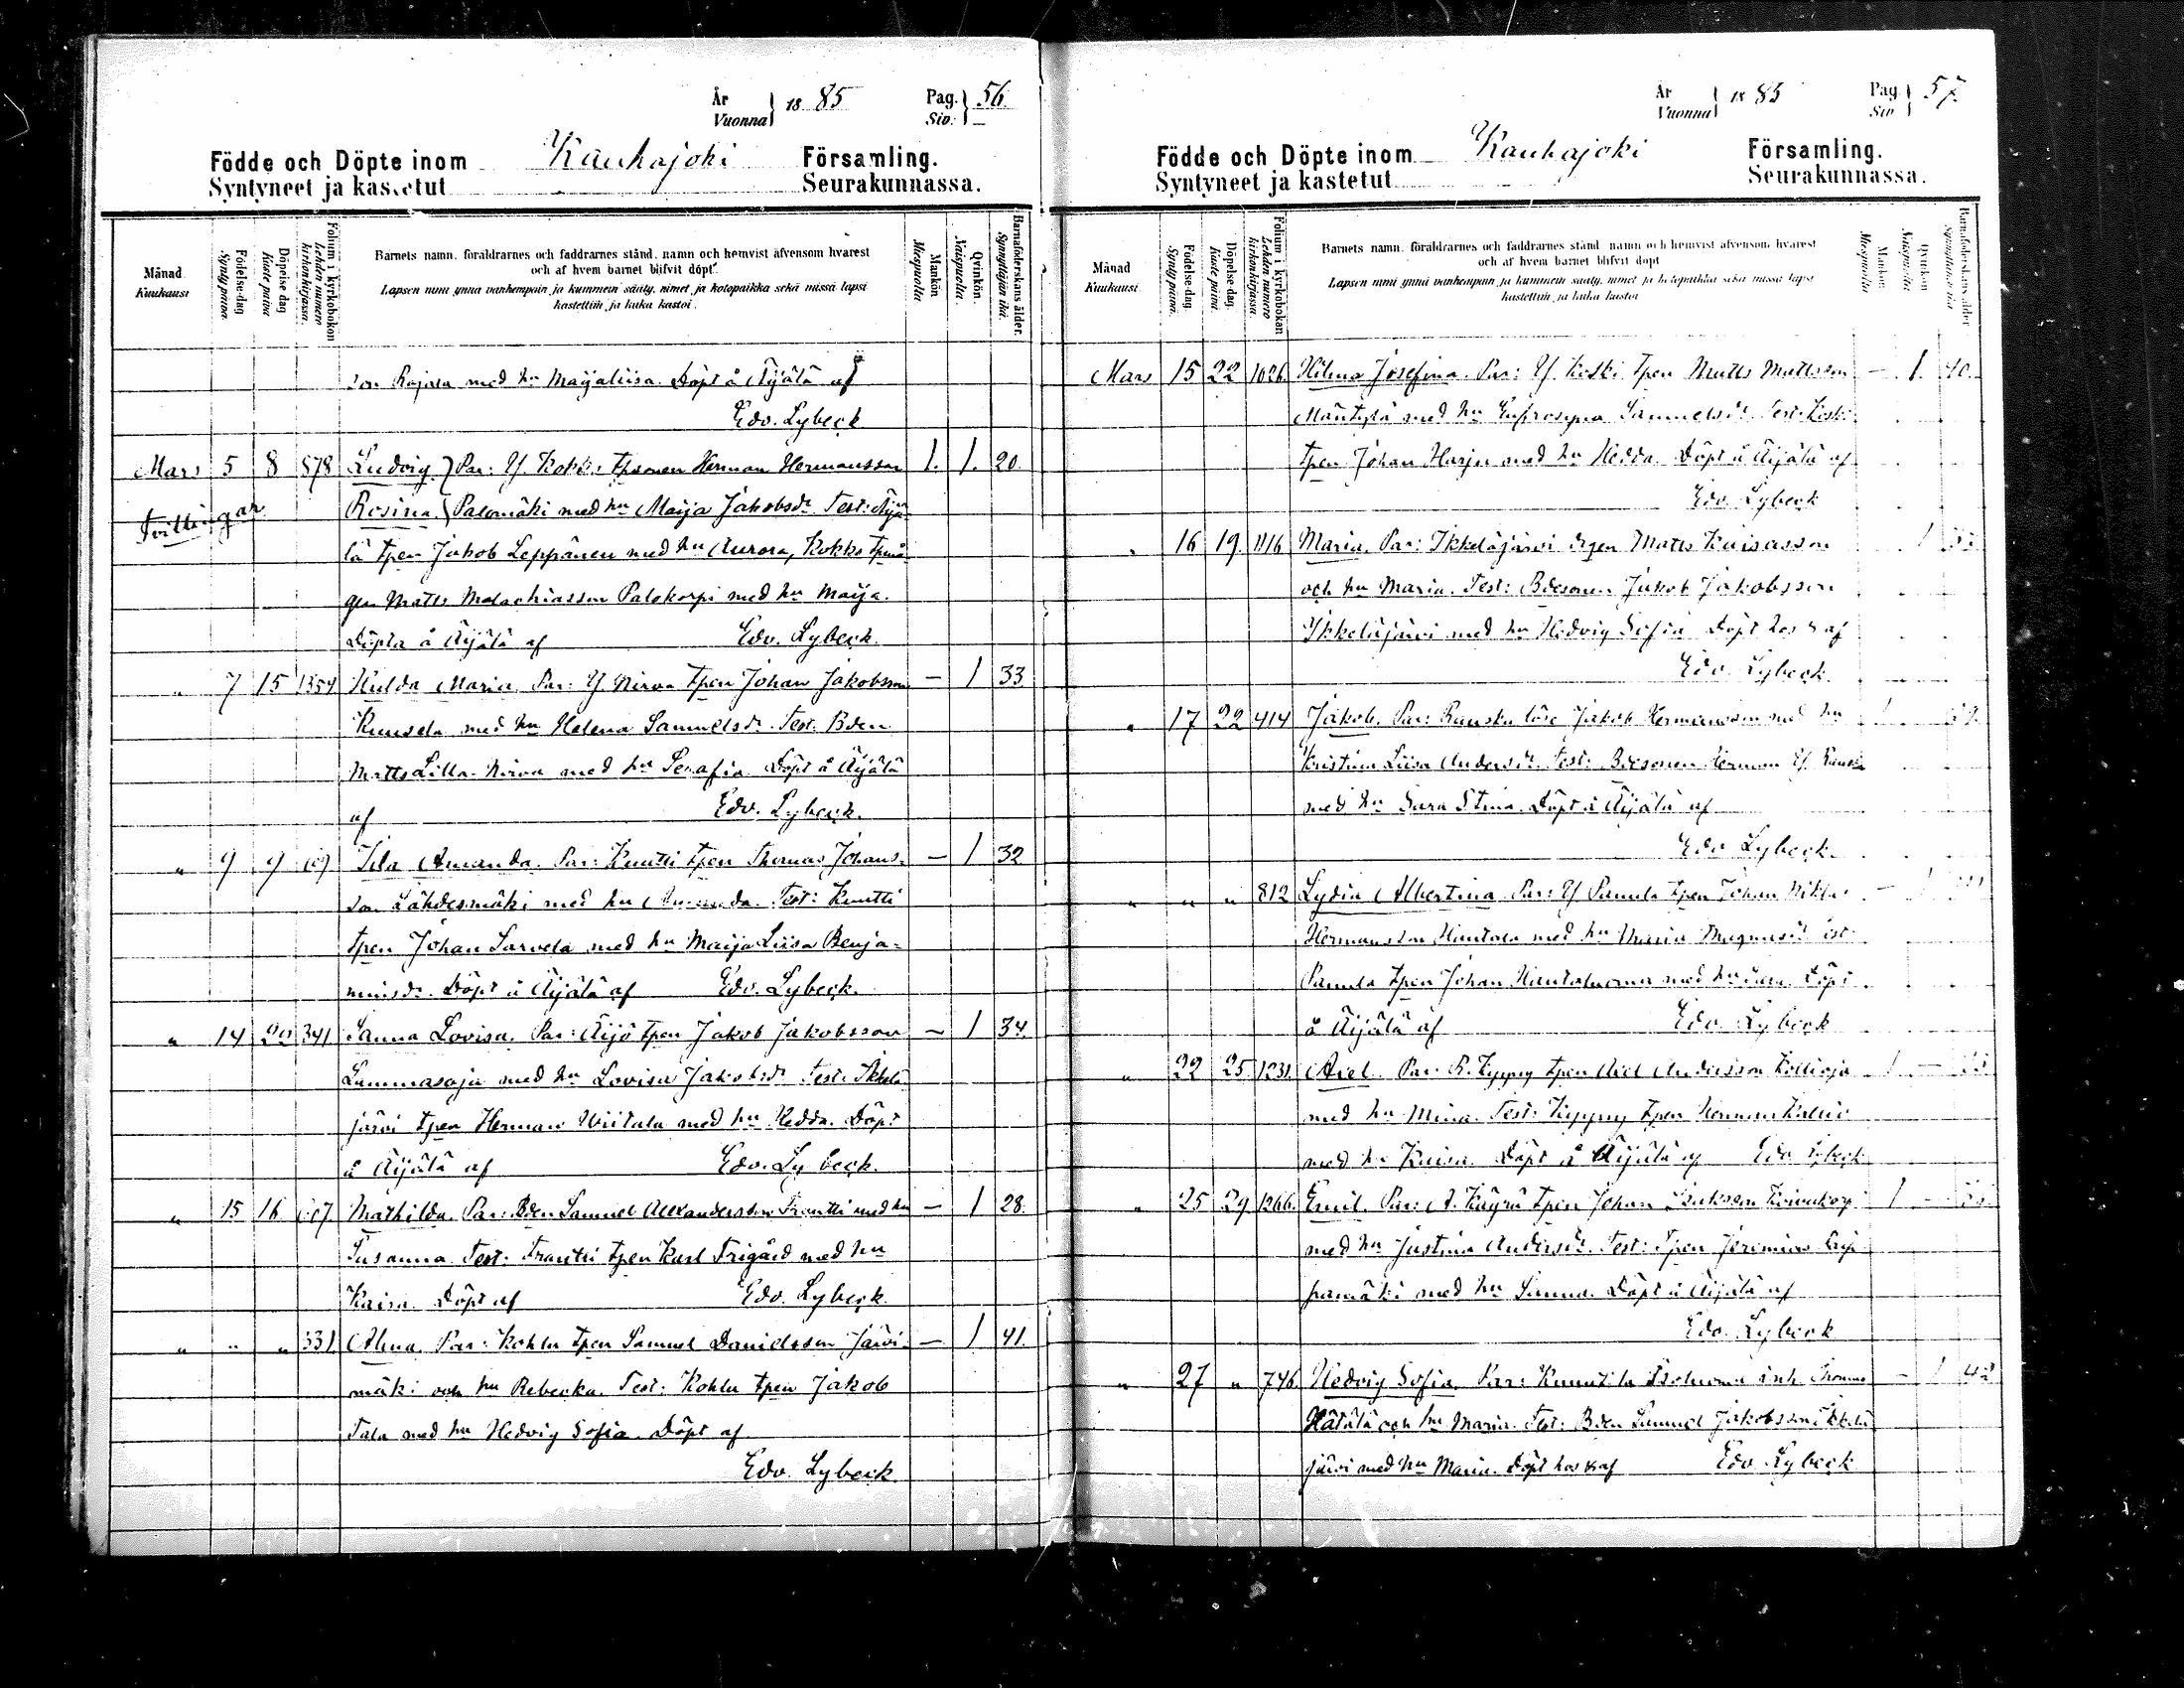 År
Vuonna } 18 85 Pag. Siv. } 56
Födde och Döpte inom Kauhajoki Församling.
Syntyneet ja kastetut Seurakunnassa.
Månad Kuukausi
Födelse-dag Synty päivä.
Döpelse dag Kaste päivä
Folium i kyrkobokon Lehden numero kirkonkirjassa.
Barnets namn, föräldrarnes och faddrarnes stånd, namn och hemvist äfvensom hvarest
och af hvem barnet blifvit döpt.
Lapsen nimi ynnä vanhempain ja kummein sääty, nimet ja kotopaikka sekä missä lapsi
kastettiin ja kuka kastoi.
Mankön Miespuolia
Qvinkön. Naispuolia.
Barnaföderskans ålder. Synnyttäjän ikä.
son Rajala med hu Maijaliisa. Döpt å Äijälä af
Edv. Lybeck
Mars 5 8 878 Ludvig } Par: Y. Kokko tpsonen Herman Hermansson 1. 1. 20.
Tvillingar Rosina } Palomäki med hu Maija Jakobsdr. Test: Äijä-
lä tpen Jakob Leppänen med hu Aurora, Kokko tpmå-
gen Matts Malachiasson Palokorpi med hu Maija.
Döpta å Äijälä af Edv. Lybeck.
" 7 15 1354 Hulda Maria. Par: Y. Nirva tpen Johan Jakobsson — 1 33
Kuusela med hu Helena Samuelsdr. Test. Bden
Matts Lilla-Nirva med hu Serafia. Döpt å Äijälä
af Edv. Lybeck.
" 9 9 Ida Amanda. Par: Knutti tpen Thomas Johans- — 1 32
son Lähdesmäki med hu Amanda. Test: Knutti
tpen Johan Sarvela med hu Maija Liisa Benja-
minsdr. Döpt å Äijälä af Edv. Lybeck.
" 14 20 341 Sanna Lovisa. Par: Äijö tpen Jakob Jakobsson — 1 34.
Lammasoja med hu Lovisa Jakobsdr. Test: Ikkelä-
järvi tpen Herman Wiitala med hu Hedda. Döpt
å Äijälä af Edv. Lybeck.
" 15 16 Mathilda. Par: Bden Samuel Alexandersson Trantti med hu — 1 28.
Susanna. Test: Trantti tpen Karl Frigård med hu
Kaisa. Döpt af Edv. Lybeck.
" " " 331 Alma. Par: Kohlu tpen Samuel Danielsson Järvi- — 1 41.
mäki och hu Rebecka. Test: Kohlu tpen Jakob
Tala med hu Hedvig Sofia. Döpt af
Edv. Lybeck.
År
Vuonna } 18 85 Pag. Siv } 57.
Födde och Döpte inom Kauhajoki Församling.
Syntyneet ja kastetut Seurakunnassa.
Månad Kuukausi
Födelse-dag. Synty päivä.
Döpelse-dag. Kaste päivä.
Folium i kyrkobokan Lehden numero kirkonkirjassa.
Barnets namn, föräldrarnes och faddrarnes stånd, namn och hemvist äfvensom hvarest
och af hvem barnet blifvit döpt
Lapsen nimi ynnä vanhempain ja kummein sääty, nimet ja kotopaikka sekä missä lapsi
kastettiin ja kuka kastoi
Mankön Miespuolia
Qvinkön Naispuolia
Barnaföderskans ålder Synnyttäjän ikä
Mars 15 22 1026 Hilma Josefina. Par: Y. Koski tpen Matts Mattsson — 1. 40.
Mäntylä med hu Eufrosyna Samuelsdr. Test: Koski
tpen Johan Harju med hu Hedda. Döpt å Äijälä af
Edv. Lybeck
" 16 19. 1116 Maria. Par: Ikkeläjärvi Matts Kaisasson 1
och hu Maria. Test: Bdesonen Jakob Jakobsson
Ikkeläjärvi med hu Hedvig Sofia. Döpt hos af
Edv. Lybeck.
" 17 22 414 Jakob. Par: Jakob Hermansson med hu 1
Kristina Liisa Andersdr. Test: Bdesonen Herman Y.
med hu Sara Stina. Döpt å Äijälä af
Edv Lybeck.
" " " 812 Lydia Albertina. Par: Y Panula tpen Johan — 1
Hermansson Hautala med hu Maria Magnusdr.
Panula tpen Johan Hautaluoma med hu Döpt
å Äijälä af Edv. Lybeck
" 22 25 1231. Axel. Par: P. Kyyny tpen Axel Andersson Kallioja 1 —
med hu Mina. Test: Kyyny tpen Herman Kallio
med hu Kaisa. Döpt å Äijälä af Edv Lybeck
" 25 29 1266. Emil. Par: A. Käyrä tpen Johan Isaksson 1 —
med hu Justina Andersdr. Test: Tpen Jeremias
pamäki med hu Sanna. Döpt å Äijälä af
Edv. Lybeck
" 27 " 746. Hedvig Sofia. Par: Knuutila Isoluoma inh Thomas — 1 42
Hätälä och hu Maria. Test: Bden Samuel Jakobsson Ikkelä-
järvi med hu Maria. Döpt hos af Edv Lybeck